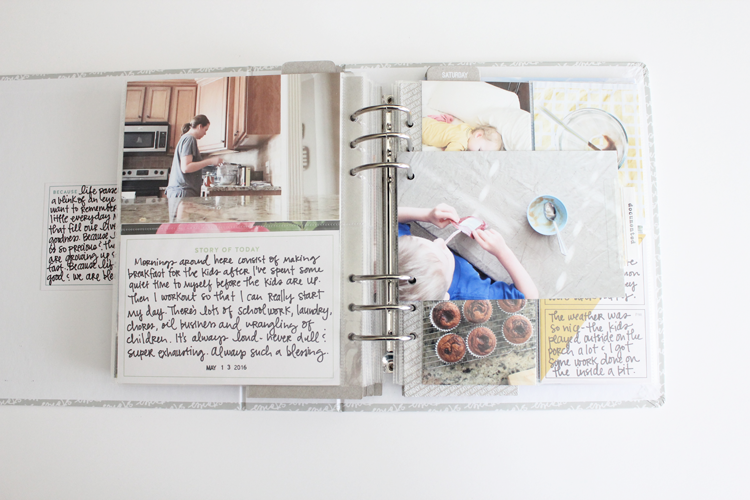 BECAUSE life passes
a blink of an eye
want to remember
little everyday
that fill our live
goodness. Because
is so precious! th
are growing up
fast. Because lif
good & we are ble
STORY OF TODAY
Mornings around here consist of making
breakfast for the kids after I've spent some
quiet time to myself before the kids are up.
Then I workout so that I can really start
my day. There's lots of schoolwork, laundry,
chores, oil business and wrangling of
children. It's always loud - never dull &
super exhausting. Always such a blessing.
MAY 13 2016
SATURDAY
documented
The weather was
so nice - the kids
played outside on the
porch a lot & I got
some work done on
the inside a bit.